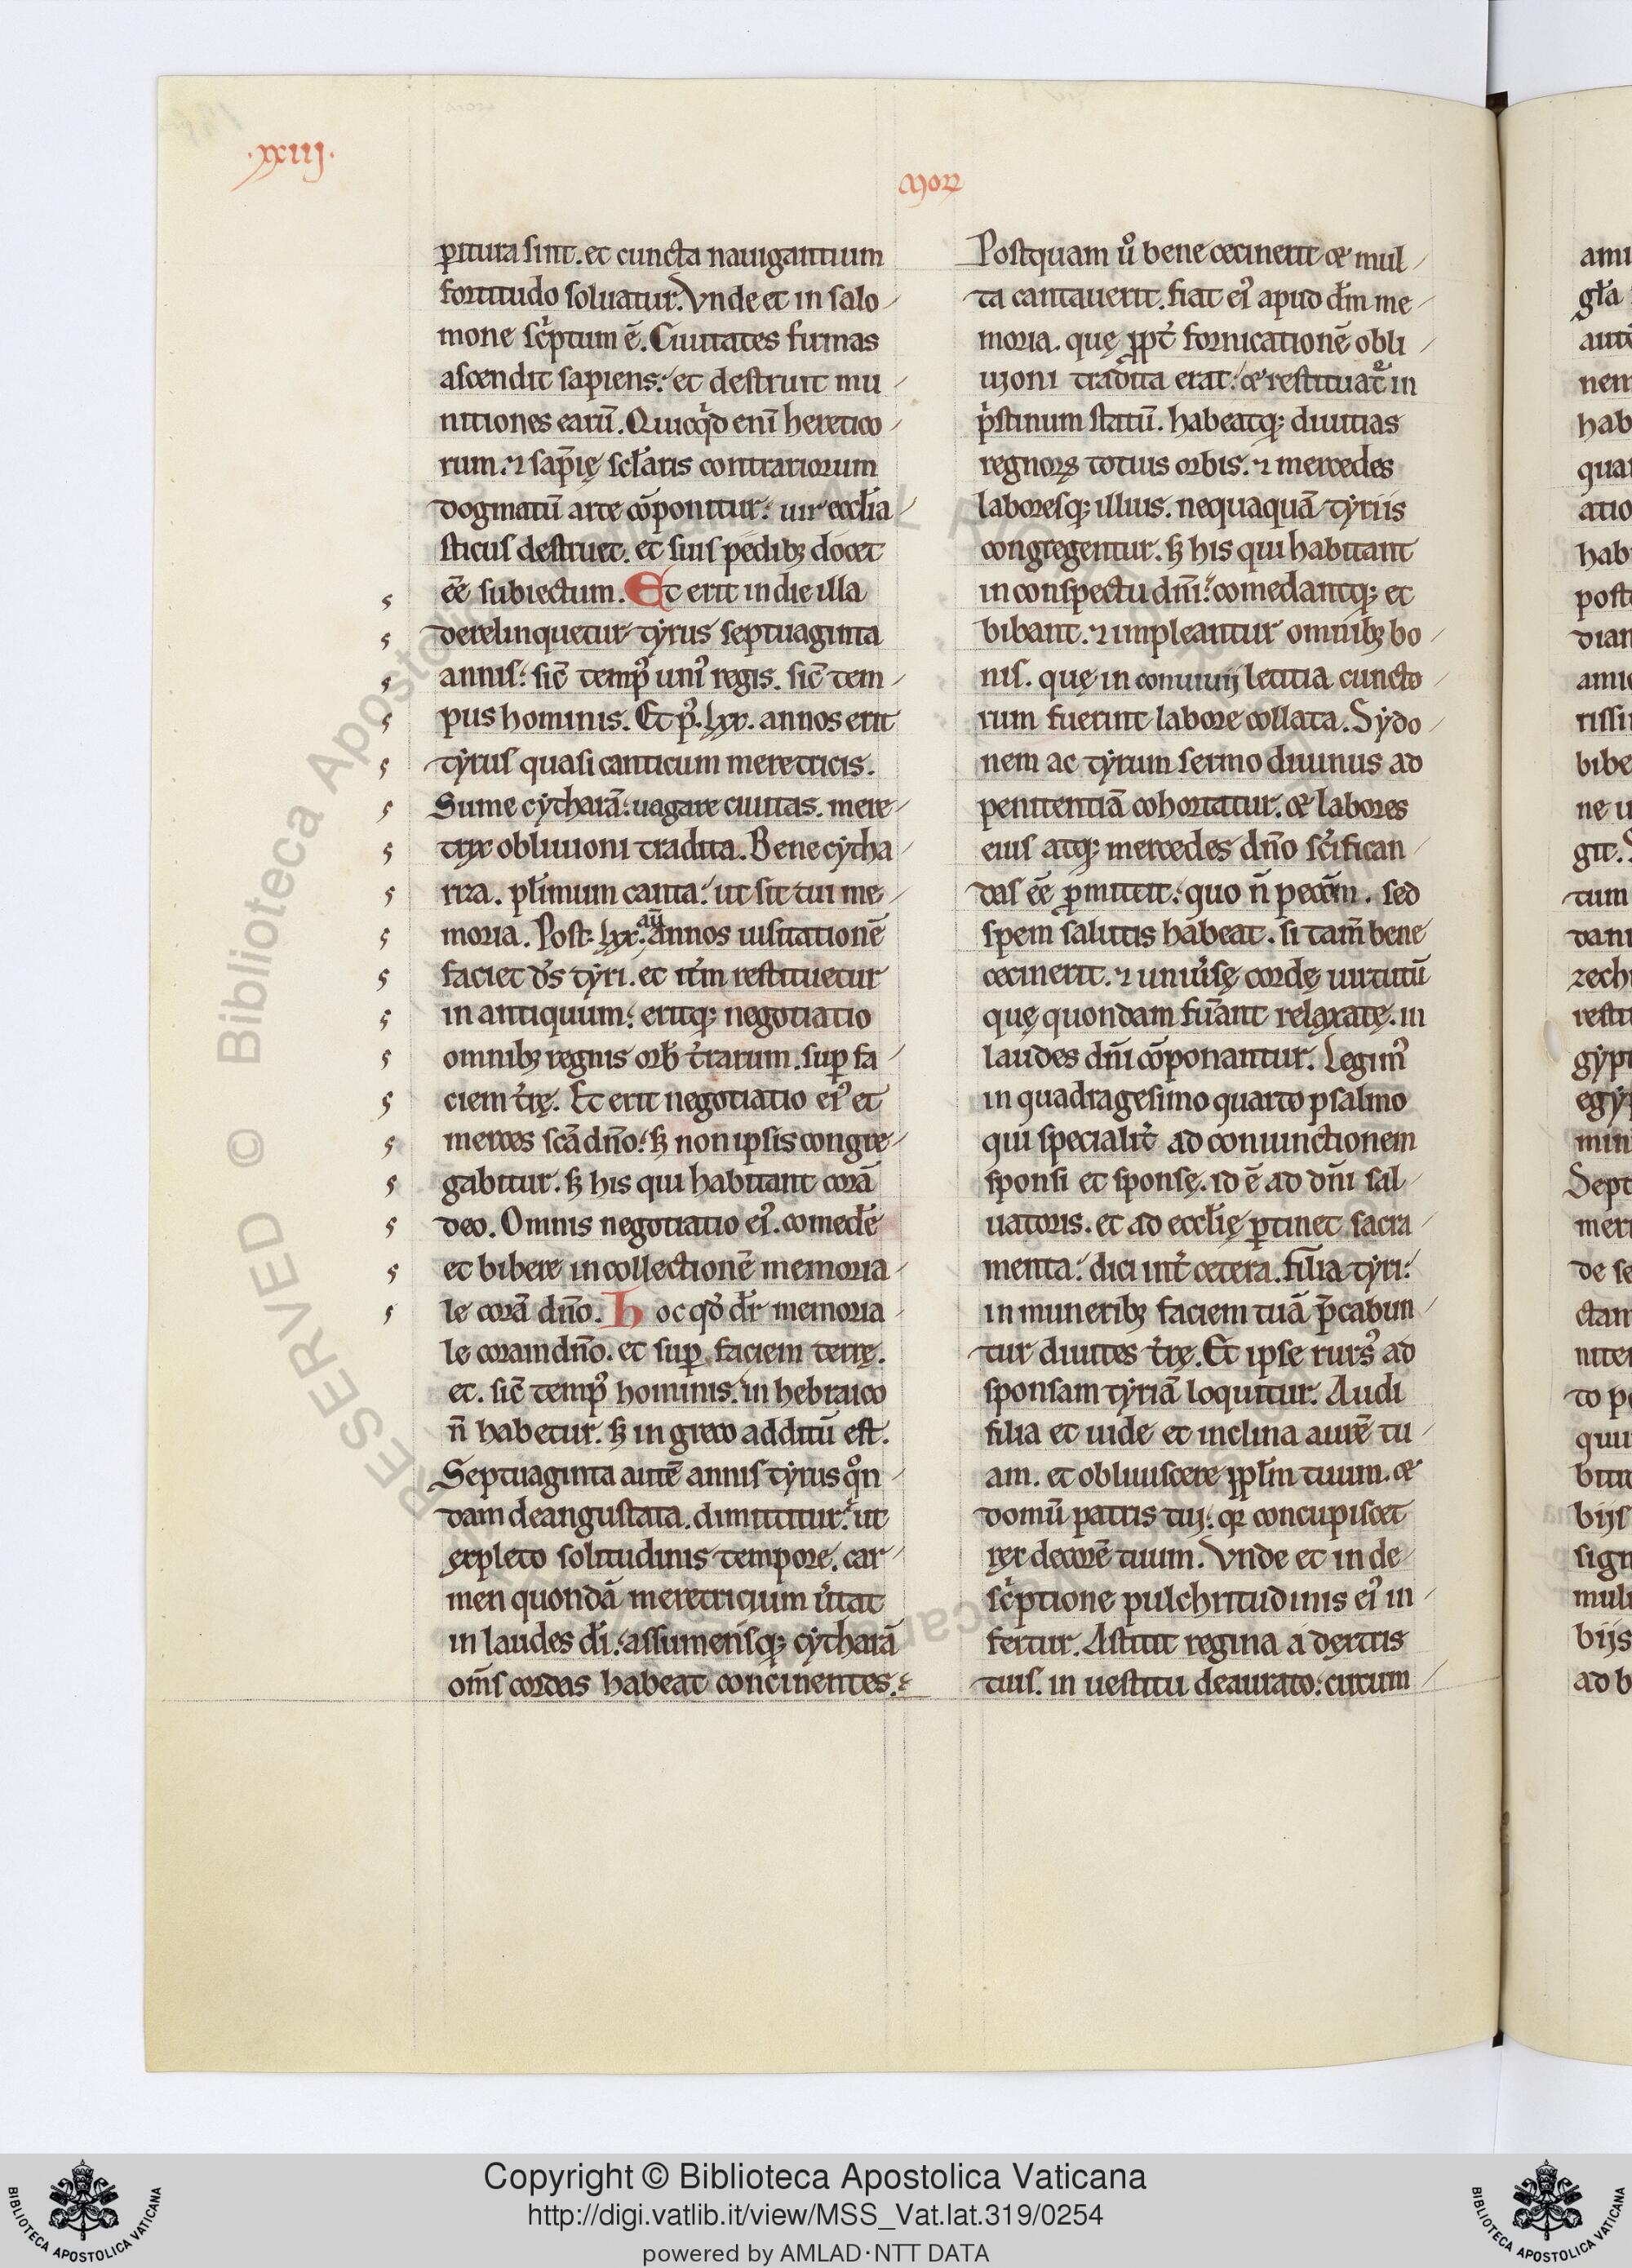 ·xxiij·
ɱoꝝ
ꝑitura sint. et cuncta nauigantium
fortitudo soluatur. Vnde et in salo
mone sc'ptum ē. Ciuitates firmas
ascendit sapiens: et destruit mu
nitiones earū. Quicq'd enī heretico
rum. ⁊ sap̄ię scl̄aris contrariorum
dogmatū arte cōponitur: uir eccl̄ia
sticus destruet. et suis pedibꝫ docet
eē subiectum. Et erit in die illa
derelinquetur tẏrus septuaginta
annis: sic̄ temp᾽ uni᾽ regis. sic̄ tem
pus hominis. Et p᾽. lxx. annos erit
tẏrus quasi canticum meretricis.
Sume cẏtharā: uagare ciuitas. mere
trix obliuioni tradita. Bene cẏtha
riza. pl̄imum canta: ut sit tui me
moria. Post lxx. aū annos uisitationē
faciet d̄s tẏri. et it̄m restituetur
in antiquum: eritqꝫ negotiatio
omnibꝫ regnis orb̄ t̄rarum. suꝑ fa
ciem t̄rę. Et erit negotiatio ei᾽ et
merces sc̄a dn̄o: sꝫ non ipsis congre
gabitur. sꝫ his qui habitant corā
deo. Omnis negotiatio ei᾽. comedē
et bibere in collectionē memoria
le corā dn̄o. Hoc qd̄ dr̄ memoria
le coram dn̄o. et suꝑ faciem terrę.
et. sic̄ temp᾽ hominis. in hebraico
n̄ habetur. sꝫ in greco additū est.
Septuaginta autē annis tẏrus qn̄
dam deangustata. dimittitur: ut
expleto solitudinis tempore. car
men quondā meretricium ūtat
in laudes dī: assumensqꝫ cẏtharā
om̄s cordas habeat concinentes.
Postquam u᾽ bene cecinerit & mul
ta cantauerit. fiat ei᾽ apud dm̄ me
moria. quę ꝓpt̄ fornicationē obli
uioni tradita erat: & restituat᾽ in
p'stinum statū. habeatqꝫ diuitias
regnoꝝ totius orbis. ⁊ mercedes
laboresqꝫ illius. nequaquā tẏriis
congregentur. sꝫ his qui habitant
in conspectu dn̄i: comedantqꝫ et
bibant. ⁊ impleantur omnibꝫ bo
nis. quę in conuiuij letitia cuncto
rum fuerint labore collata. Sẏdo
nem ac tẏrum sermo diuinus ad
penitentiā cohortatur. & labores
eius atqꝫ mercedes dn̄o sc̄ifican
das eē ꝓmittit: quo n̄ peccm̄. sed
spem salutis habeat. si tam̄ bene
cecinerit. ⁊ uniūsę cordę uirtutū
quę quondam fūant relaxatę. in
laudes dn̄i cōponantur. Legim᾽
in quadragesimo quarto psalmo
qui specialit̄ ad coniunctionem
sponsi et sponsę. id ē ad dn̄i sal
uatoris. et ad eccl̄ię ꝑtinet sacra
menta: dici int̄ cetera. filia tẏri:
in muneribꝫ faciem tuā p̄cabun
tur diuites t̄rę. Et ipse rurs᾽ ad
sponsam tẏriā loquitur. Audi
filia et uide et inclina aurē tu
am. et obliuiscere ppl̄m tuum. &
domū patris tui: qꝛ concupiscet
rex decorē tuum. Vnde et in de
sc'ptione pulchritudinis ei᾽ in
fertur. Astitit regina a dextris
tuis. in uestitu deaurato: circum
Copyright © Biblioteca Apostolica Vaticana
http://digi.vatlib.it/view/MSS_Vat.lat.319/0254
powered by AMLAD·NTT DATA